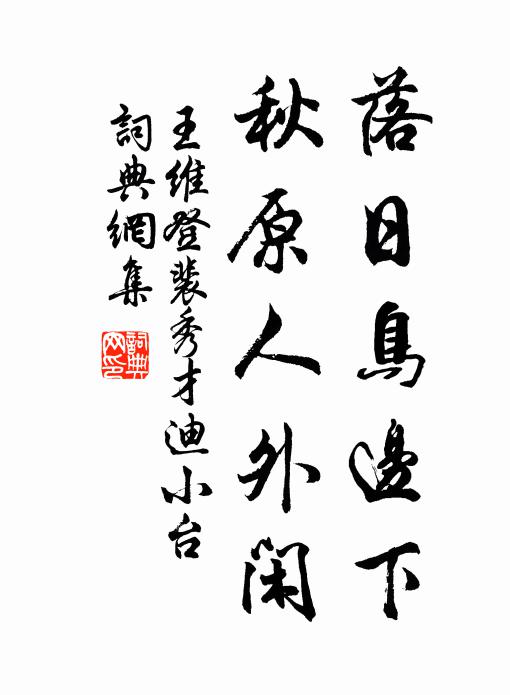 落日鳥邊下
秋原人外閑
王維登裴秀才迪小台
詞典網集
詞典
网印